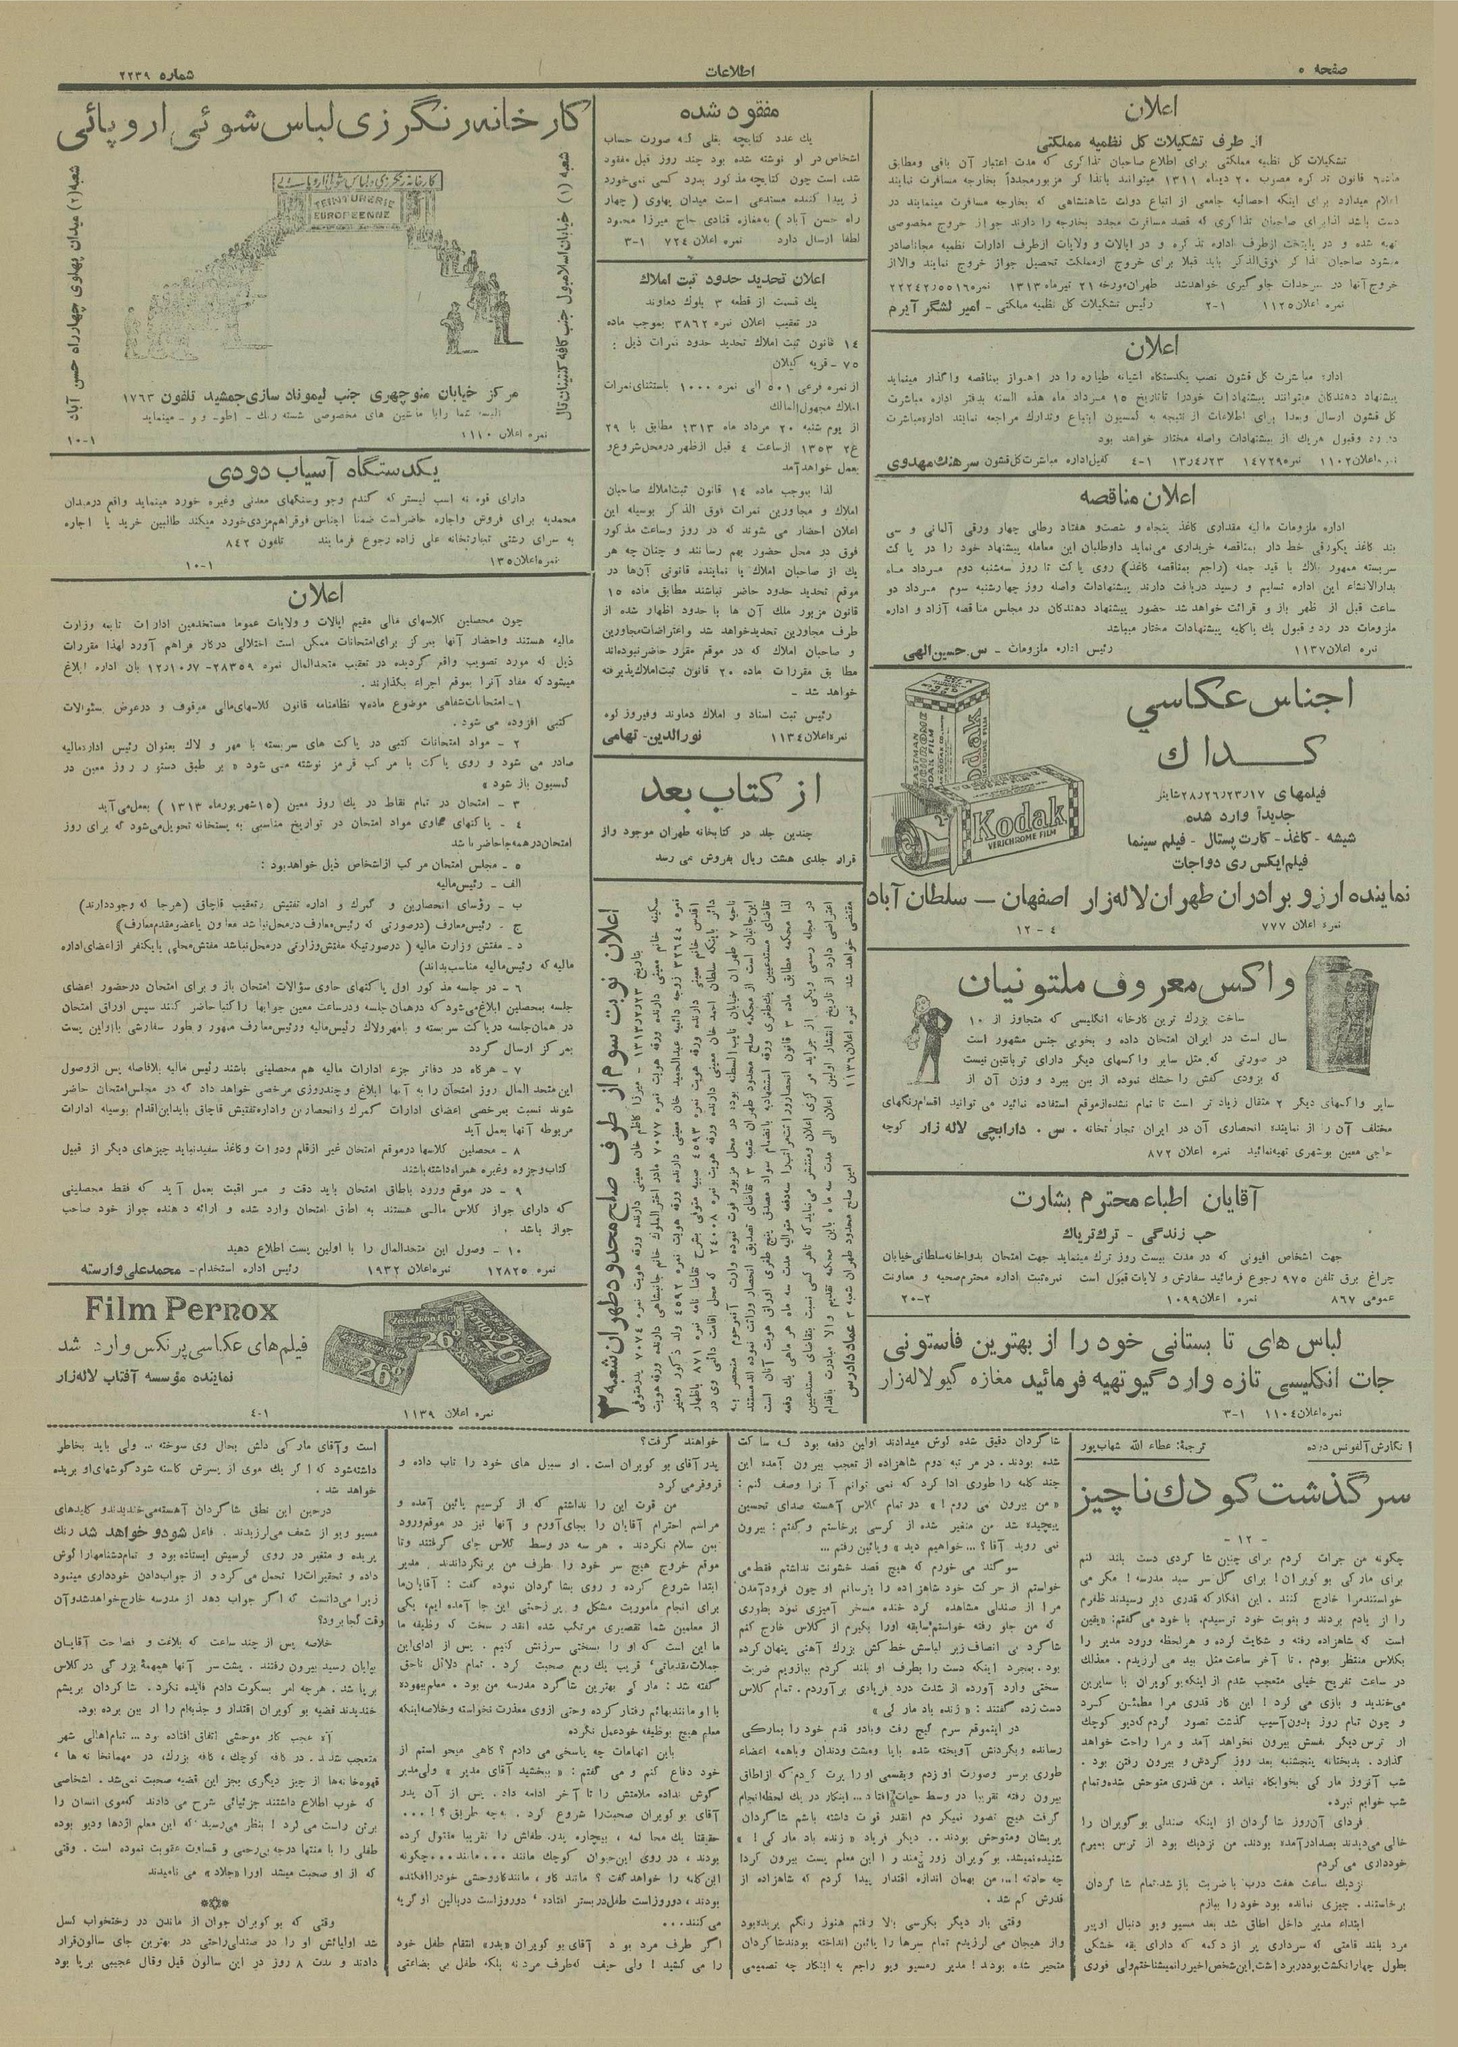 صفحه ۵
اطلاعات
شماره ۲۲۳۹
اعلان
از طرف تشکیلات کل نظمیه مملکتی
تشکیلات کل نظمیه مملکتی برای اطلاع صاحبان تذاکری که مدت اعتبار آن باقی ومطابق
ماده۶ قانون تذکره مصوب ۲۰ دیماه ۱۳۱۱ میتوانند باتذاکر مزبورمجدداً بخارجه مسافرت نمایند
اعلام میدارد برای اینکه احصائیه جامعی از اتباع دولت شاهنشاهی که بخارجه مسافرت مینمایند در
دست باشد لذابرای صاحبان تذاکری که قصد مسافرت مجدد بخارجه را دارند جواز خروج مخصوصی
تهیه شده و در پایتخت ازطرف اداره تذکره و در ایالات و ولایات ازطرف ادارات نظمیه مجاناصادر
میشود صاحبان تذاکر فوق‌الذکر باید قبلا برای خروج ازمملکت تحصیل جواز خروج نمایند والااز
خروج آنها در سرحدات جلوگیری خواهدشد طهران‌مورخه ۲۱ تیرماه ۱۳۱۳ نمره۲۲۲۴۲٫۵۵۱۶
نمره اعلان۱۱۲۵ ۱-۲ رئیس تشکیلات کل نظمیه مملکتی - امیر لشگر آیرم
اعلان
اداره مباشرت کل قشون نصب یکدستگاه آشیانه طیاره را در اهواز بمناقصه واگذار مینماید
پیشنهاد دهندگان میتوانند پیشنهادات خودرا تاتاریخ ۱۵ مرداد ماه هذه السنه بدفتر اداره مباشرت
کل قشون ارسال وبعدا برای اطلاعات از نتیجه به کمسیون ابتیاع وتدارک مراجعه نمایند اداره‌مباشرت
دررد وقبول هریک از پیشنهادات واصله مختار خواهد بود
نمره‌اعلان۱۱۰۲ نمره۱۴۷۲۹ ۱۳٫۴٫۲۳ ۱-۴ کفیل‌اداره مباشرت‌کل‌قشون سرهنك‌مهدوی
اعلان مناقصه
اداره ملزومات مالیه مقداری کاغذ پنجاه و شصت‌و هفتاد رطلی چهار ورقی آلمانی و سی
بند کاغذ یکورقی خط دار بمناقصه خریداری می‌نماید داوطلبان این معامله پیشنهاد خود را در پاکت
سربسته ممهور بلاک با قید جمله (راجع بمناقصه کاغذ) روی پاکت تا روز سه‌شنبه دوم مرداد ماه
بدارالانشاء این اداره تسلیم و رسید دریافت دارند پیشنهادات واصله روز چهارشنبه سوم مرداد دو
ساعت قبل از ظهر باز و قرائت خواهد شد حضور پیشنهاد دهندگان در مجلس مناقصه آزاد و اداره
ملزومات در رد و قبول یك یاکلیه پیشنهادات مختار میباشد
نمره اعلان۱۱۳۷ رئیس اداره ملزومات - س.حسین‌الهی
اجناس عکاسي
کداك
فیلمهای ۲۸٫۲۶٫۲۳٫۱۷شاینر
جدیداً وارد شده
شیشه - کاغذ- کارت پستال - فیلم سینما
فیلم‌ایکس ری دواجات
نماینده ارزو برادران طهران لاله زار اصفهان - سلطان آباد
نمره اعلان ۷۷۷ ۴ - ۱۲
EASTMAN
Kodak
VERICHROME FILM
واکس معروف ملتونیان
ساخت بزرك ترین کارخانه انگلیسی که متجاوز از ۱۰
سال است در ایران امتحان داده و بخوبی جنس مشهور است
در صورتی که مثل سایر واکسهای دیگر دارای تربانتین نیست
که بزودی کفش را خشك نموده از بین ببرد و وزن آن از
سایر واکسهای دیگر ۲ مثقال زیاد تر است تا تمام نشده‌ازموقع استفاده نمائید می توانید اقسام‌رنگهای
مختلف آن را از نماینده انحصاری آن در ایران تجارتخانه . س . دارابچی لاله زار کوچه
حاجی معین بوشهری تهیه‌نمائید نمره اعلان ۸۷۲
آقایان اطباء محترم بشارت
حب زندگی - ترك‌تریاك
جهت اشخاص افیونی که در مدت بیست روز ترك مینماید جهت امتحان بدواخانه‌سلطانی‌خیابان
چراغ برق تلفن ۹۷۵ رجوع فرمائید سفارش و لایات قبول است نمره‌ثبت اداره محترم‌صحیه و معاونت
عمومی ۸۶۷ نمره اعلان۱۰۹۹ ۲-۲۰
لباس های تا بستانی خود را از بهترین فاستونی
جات انگلیسی تازه وارد گیو تهیه فرمائید مغازه گیو لاله‌زار
نمره‌اعلان۱۱۰۴ ۱-۳
مفقود شده
یك عدد کتابچه بغلی که صورت حساب
اشخاص در او نوشته شده بود چند روز قبل مفقود
شده است چون کتابچه مذکور بدرد کسی نمی‌خورد
از پیدا کننده مستدعی است میدان پهلوی (چهار
راه حسن آباد) بمغازه قنادی حاج میرزا محمود
لطفا ارسال دارد نمره اعلان ۷۲۴ ۱-۳
اعلان تحدید حدود ثبت املاك
یك قسمت از قطعه ۳ بلوك دماوند
در تعقیب اعلان نمره ۳۸۶۲ بموجب ماده
۱۴ قانون ثبت املاك تحدید حدود نمرات ذیل :
۷۵ - قریه گیلان
ازنمره فرعی ۵۰۱ الی نمره ۱۰۰۰ باستثنای‌نمرات
املاك مجهول‌المالك
از یوم شنبه ۲۰ مرداد ماه ۱۳۱۳ مطابق با ۲۹
ع۲ ۱۳۵۳ ازساعت ۴ قبل ازظهر درمحل‌شروع‌و
بعمل خواهدآمد
لذا بموجب ماده ۱۴ قانون ثبت‌املاك صاحبان
املاك و مجاورین نمرات فوق الذکر بوسیله این
اعلان احضار می شوند که در روز وساعت مذکور
فوق در محل حضور بهم رسانند و چنان چه هر
یك از صاحبان املاك یا نماینده قانونی آن‌ها در
موقع تحدید حدود حاضر نباشند مطابق ماده ۱۵
قانون مزبور ملك آن ها با حدود اظهار شده از
طرف مجاورین تحدیدخواهد شد واعتراضات‌مجاورین
و صاحبان املاك که در موقع مقرر حاضرنبوده‌اند
مطابق مقررات ماده ۲۰ قانون ثبت‌املاك‌پذیرفته
خواهد شد -
رئیس ثبت اسناد و املاك دماوند وفیروز کوه
نمره‌اعلان۱۱۳۴ نورالدین-تهامی
از کتاب بعد
چندین جلد در کتابخانه طهران موجود واز
قرار جلدی هشت ریال بفروش می رسد
اعلان نوبت سوم از طرف صلح محدود طهران شعبه ۳
کارخانه رنگرزی لباس شوئی اروپائی
شعبه (۱) خیابان اسلامبول جنب کافه کنتینانتال
شعبه(۲) میدان پهلوی چهارراه حسن آباد
TEINTURERIE
EUROPEENNE
مرکز خیابان منوچهری جنب لیموناد سازی جمشید تلفون ۱۷۶۳
البسه شما رابا ماشین های مخصوصی شسته رنك - اطو - رفو - مینماید
نمره اعلان ۱۱۱۰ ۱-۱۰
یکدستگاه آسیاب دودی
دارای قوه نه اسب لیستر که گندم وجو وسنگهای معدنی وغیره خورد مینماید واقع درمیدان
محمدیه برای فروش واجاره حاضراست ضمنا اجناس فوق‌راهم‌مزدی‌خورد میکند طالبین خرید یا اجاره
به سرای رشتی تجارتخانه علی زاده رجوع فرمایند تلفون ۸۴۲
نمره‌اعلان۱۳۵ ۱-۱۰
اعلان
چون محصلین کلاسهای مالی مقیم ایالات و ولایات عموما مستخدمین ادارات تابعه وزارت
مالیه هستند واحضار آنها بمرکز برای‌امتحانات ممکن است اختلالی درکار فراهم آورد لهذا مقررات
ذیل که مورد تصویب واقع گردیده در تعقیب متحدالمال نمره ۲۸۳۵۹-۱۲٫۱۰٫۷ بان اداره ابلاغ
میشود که مفاد آنرا بموقع اجراء بگذارند.
۱-امتحانات‌شفاهی موضوع ماده۷ نظامنامه قانون کلاسهای‌مالی موقوف و درعوض بسئوالات
کتبی افزوده می شود.
۲ - مواد امتحانات کتبی در پاکت های سربسته با مهر و لاك بعنوان رئیس اداره‌مالیه
صادر می شود و روی پاکت با مرکب قرمز نوشته می شود « بر طبق دستور روز معین در
کمسیون باز شود »
۳ - امتحان در تمام نقاط در یك روز معین (۱۵شهریورماه ۱۳۱۳) بعمل‌می‌آید
۴ - پاکتهای محتوی مواد امتحان در تواریخ مناسبی به پستخانه تحویل‌می‌شود که برای روز
امتحان‌درهمه‌جاحاضرباشد
۵ - مجلس امتحان مرکب ازاشخاص ذیل خواهدبود :
الف - رئیس‌مالیه
ب - رؤسای انحصارین و گمرك و اداره تفتیش و تعقیب قاچاق (هرجا که وجوددارند)
ج - رئیس‌معارف (درصورتی که رئیس‌معارف درمحل‌نباشد معاون یاعضومقدم‌معارف)
د - مفتش وزارت مالیه (درصورتیکه مفتش‌وزارتی درمحل‌نباشد مفتش‌محلی یایکنفر ازاعضای‌اداره
مالیه که رئیس‌مالیه مناسب‌بداند)
۶ - در جلسه مذکور اول پاکتهای حاوی سؤالات امتحان باز و برای امتحان درحضور اعضای
جلسه بمحصلین ابلاغ‌می‌شود که درهمان جلسه ودرساعت معین جوابها راکتبا حاضر کنند سپس اوراق امتحان
در همان‌جلسه درپاکت سربسته و بامهرولاك رئیس‌مالیه ورئیس‌معارف ممهور و بطور سفارشی بااولین پست
بمرکز ارسال گردد
۷ - هرگاه در دفاتر جزء ادارات مالیه هم محصلینی باشند رئیس مالیه بلافاصله پس ازوصول
این‌متحدالمال روز امتحان را به آنها ابلاغ وچندروزی مرخصی خواهد داد که درمجلس‌امتحان حاضر
شوند نسبت بمرخصی اعضای ادارات گمرك وانحصارین واداره‌تفتیش قاچاق بایداین‌اقدام بوسیله ادارات
مربوطه آنها بعمل آید
۸ - محصلین کلاسها درموقع امتحان غیر ازقلم ودوات وکاغذ سفیدنباید چیزهای دیگر از قبیل
کتاب‌وجزوه وغیره همراه‌داشته‌باشند
۹ - در موقع ورود باطاق امتحان باید دقت و مراقبت بعمل آید که فقط محصلینی
که دارای جواز کلاس مالی هستند به اطاق امتحان وارد شده و ارائه دهنده جواز خود صاحب
جواز باشد .
۱۰ - وصول این متحدالمال را با اولین پست اطلاع دهید
نمره ۱۲۸۲۵ نمره‌اعلان ۱۹۳۲ رئیس اداره استخدام- محمدعلی‌وارسته
Film Pernox
فیلم‌های عکاسی پرنکس وارد شد
نماینده مؤسسه آفتاب لاله‌زار
نمره اعلان ۱۱۳۹ ۱-۴
Zeiss Ikon Film
26°
نگارش آلفونس دوده ترجمهٔ: عطاء الله شهاب‌پور
سرگذشت کودك ناچیز
- ۱۲ -
چگونه من جرات کردم برای چنین شاگردی دست بلند کنم
برای مارکی بوکویران! برای گل سر سبد مدرسه! مگر می
خواستندمرا خارج کنند. این افکارکه قدری دیر رسیدند ظفرم
را از یادم بردند و بنوبت خود ترسیدم. با خود می‌گفتم: «یقین
است که شاهزاده رفته و شکایت کرده و هرلحظه ورود مدیر را
بکلاس منتظر بودم. تا آخر ساعت مثل بید می لرزیدم. معذلك
در ساعت تفریح خیلی متعجب شدم از اینکه‌بوکویران با سایرین
می‌خندید و بازی می کرد! این کار قدری مرا مطمئن کرد
و چون تمام روز بدون‌آسیب گذشت تصور کردم‌که‌دیو کوچك
از ترس دیگر نفسش بیرون نخواهد آمد و مرا راحت خواهد
گذارد. بدبختانه پنجشنبه بعد روز گردش و بیرون رفتن بود.
شب آنروز مارکی بخوابگاه نیامد. من قدری متوحش شده‌وتمام
شب خوابم نبرد.
فردای آن‌روز شاگردان از اینکه صندلی بوکویران را
خالی می‌دیدند بصدادرآمده بودند. من نزدیك بود از ترس بمیرم
خودداری می کردم
نزدیك ساعت هفت درب با ضربت باز شد.تمام شاگردان
برخاستند. چیزی نمانده بود خود را ببازم
ابتداء مدیر داخل اطاق شد بعد مسیو ویو دنبال اوپیر
مرد بلند قامتی که سرداری پر از دکمه که دارای یقه خشکی
بطول چهارانگشت‌بوددربرداشت.این‌شخص‌اخیررانمیشناختم‌ولی فوری
شاگردان دقیق شده گوش میدادند اولین دفعه بود که ساکت
شده بودند. در مرتبه دوم شاهزاده از تعجب بیرون آمده این
چند کلمه را طوری ادا کرد که نمی توانم آنرا وصف کنم :
«من بیرون نمی روم!» در تمام کلاس آهسته صدای تحسین
پیچیده شد من متغیر شده از کرسی برخاستم وگفتم: بیرون
نمی روید آقا؟... خواهیم دید» وپائین رفتم...
سوگند می خورم که هیچ قصد خشونت نداشتم فقط‌می
خواستم از حرکت خود شاهزاده را بترسانم او چون فرودآمدن
مرا از صندلی مشاهده کرد خنده مسخر آمیزی نمود بطوری
که من جلو رفته خواستم‌بیقه اورا بگیرم از کلاس خارج کنم
شاگرد بی انصاف زیر لباسش خط کش بزرك آهنی پنهان کرده
بود. بمجرد اینکه دست را بطرف او بلند کردم ببازویم ضربت
سختی وارد آورده از شدت درد فریادی برآوردم. تمام کلاس
دست زده گفتند: «زنده باد مارکی!»
در اینموقع سرم گیج رفت وبادو قدم خود را بمارکی
رسانده وبگردنش آویخته شده باپا ومشت ودندان وباهمه اعضاء
طوری برسر وصورت او زدم وبقسمی اورا پرت کردم‌که ازاطاق
بیرون رفته تقریبا در وسط حیات افتاد... اینکار در یك لحظه‌انجام
گرفت هیچ تصور نمیکردم آنقدر قوت داشته باشم شاگردان
پریشان ومتوحش بودند... دیگر فریاد «زنده باد مارکی!»
شنیده‌نمیشد. بوکویران زورمند را این معلم پست بیرون کرد!
چه حادثه!... من بهمان اندازه اقتدار پیدا کردم که شاهزاده از
قدرش کم شد.
وقتی بار دیگر بکرسی بالا رفتم هنوز رنگم پریده‌بود
واز هیجان می لرزیدم تمام سرها را پائین انداخته بودندشاگردان
متحیر شده بودند! مدیر ومسیو ویو راجع به اینکار چه تصمیمی
خواهند گرفت؟
پدر آقای بوکویران است. او سبیل های خود را تاب داده و
قروقرمی کرد
من قوت این را نداشتم که از کرسیم پائین آمده و
مراسم احترام آقایان را بجای‌آورم و آنها نیز در موقع‌ورود
بمن سلام نکردند. هر سه در وسط کلاس جای گرفتند وتا
موقع خروج هیچ سر خود را طرف من برنگرداندند. مدیر
ابتدا شروع کرده و روی بشاگردان نموده گفت: آقایان‌ما
برای انجام ماموریت مشکل و پر زحمتی این جا آمده ایم. یکی
از معلمین شما تقصیری مرتکب شده آنقدر سخت که وظیفه ما
ما این است که او را بسختی سرزنش کنیم. پس از ادای‌این
جملات‌مقدماتی، قریب یك ربع صحبت کرد. تمام دلائل ناحق
گفته شد: مارکی بهترین شاگرد مدرسه من بود. معلم‌بیهوده
با او مانندبهائم رفتار کرده وحتی ازوی معذرت نخواسته وخلاصه‌اینکه
معلم هیچ بوظیفه خودعمل نکرده
باین اتهامات چه پاسخی می دادم؟ گاهی میخواستم از
خود دفاع کنم و می گفتم: «ببخشید آقای مدیر» ولی‌مدیر
گوش نداده ملامتش را تا آخر ادامه داد. پس از آن پدر
آقای بوکویران صحبت‌را شروع کرد. به‌چه طریق؟!...
حقیقتا یك محاکمه، بیچاره پدر. طفلش را تقریبا مقتول کرده
بودند، در روی این‌حیوان کوچك مانند... مانند...چگونه
این‌کلمه را خواهدگفت؟ مانند گاو، مانندگاووحشی خودراافکنده
بودند، دوروزاست طفل‌دربستر افتاده، دوروزاست دربالین او گریه
می‌کنند...
اگر طرف مرد بود آقای بوکویران «پدر» انتقام طفل خود
را می کشید! ولی حیف که‌طرف مردنه بلکه طفل بی بضاعتی
است وآقای مارکی دلش بحال وی سوخته... ولی باید بخاطر
داشته‌شود که اگر یك موی از پسرش کاسته شود گوشهای‌او بریده
خواهد شد.
درحین این نطق شاگردان آهسته‌می‌خندیدندو کلیدهای
مسیو ویو از شعف می‌لرزیدند. فاعل شودو خواهد شد رنك
پریده و متغیر در روی کرسیش ایستاده بود و تمام‌دشنامهاراگوش
داده و تحقیرات‌را تحمل می‌کرد و از جواب‌دادن خودداری مینمود
زیرا می‌دانست که اگر جواب دهد از مدرسه خارج‌خواهدشدوآن
وقت کجابرود؟
خلاصه پس از چند ساعت که بلاغت و فصاحت آقایان
بپایان رسید بیرون رفتند. پشت‌سر آنها همهمهٔ بزرگی درکلاس
برپا شد. هرچه امر بسکوت دادم فایده نکرد. شاگردان بریشم
خندیدند قضیه بوکویران اقتدار و جذبه‌ام را از بین برده بود.
آه عجب کار موحشی اتفاق افتاده بود... تمام‌اهالی شهر
متعجب شدند. در کافه کوچك، کافه بزرك، در مهمانخانه ها،
قهوه‌خانه‌ها از چیز دیگری بجز این قضیه صحبت نمی‌شد. اشخاصی
که خوب اطلاع داشتند جزئیاتی شرح می دادند که‌موی انسان را
برتن راست می کرد! بنظر می‌رسید که این معلم اژدها ودیو بوده
طفلی را با منتها درجه بی‌رحمی و قساوت عقوبت نموده است. وقتی
که از او صحبت میشد اورا «جلاد» می نامیدند
وقتی که بوکویران جوان از ماندن در رختخواب کسل
شد اولیائش او را در صندلی‌راحتی در بهترین جای سالون‌قرار
دادند و مدت ۸ روز در این سالون قیل وقال عجیبی برپا بود